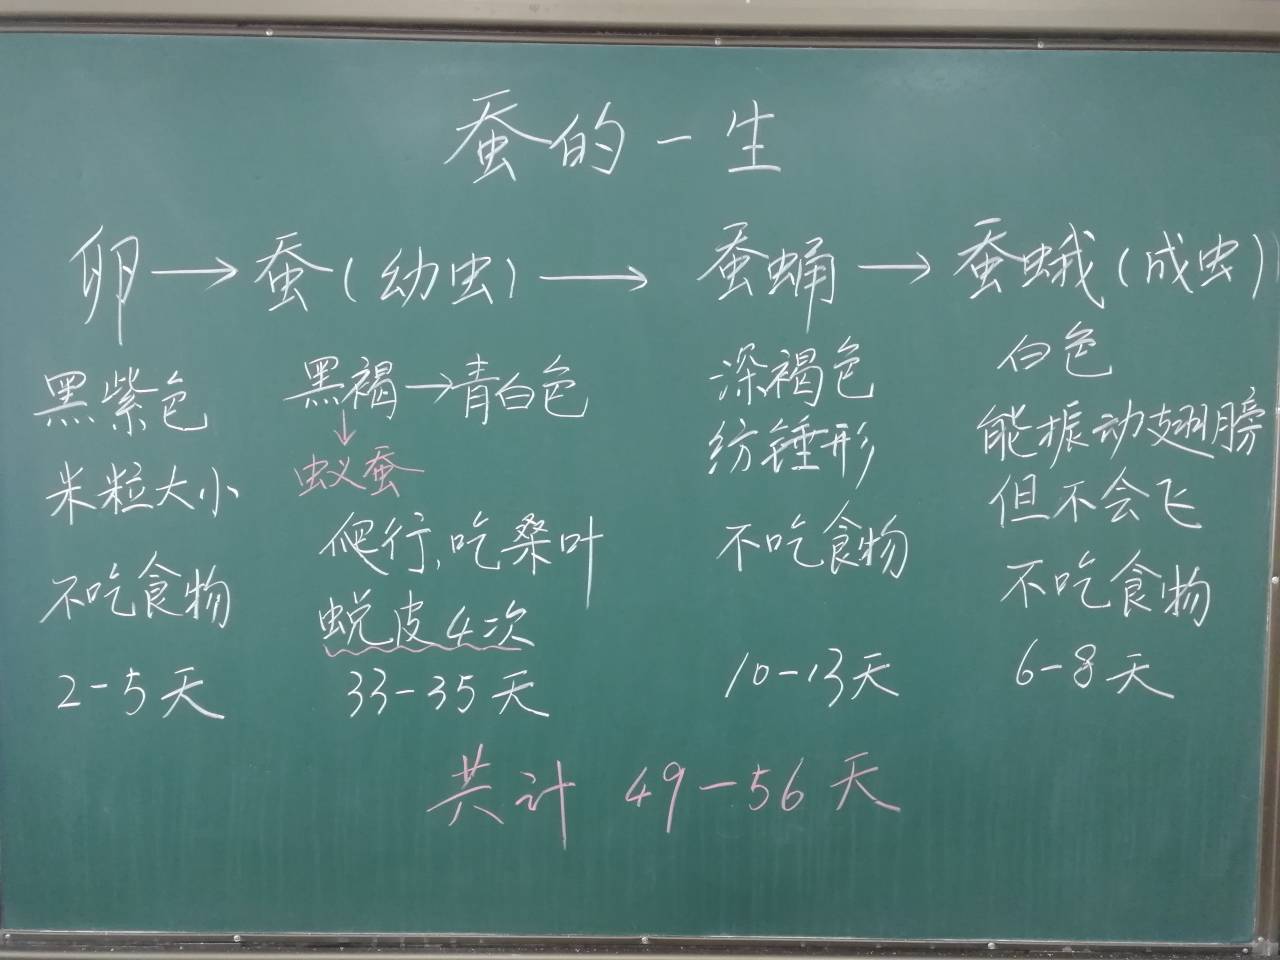 蚕的一生
卵→蚕(幼虫)→蚕蛹→蚕蛾(成虫)
黑紫色
米粒大小
不吃食物
2-5天
黑褐→青白色
↓
蚁蚕
爬行,吃桑叶
蜕皮4次
33-35天
深褐色
纺锤形
不吃食物
10-13天
白色
能振动翅膀
但不会飞
不吃食物
6-8天
共计 49-56天